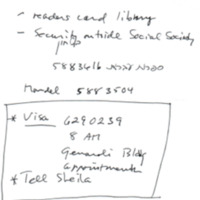 - readers card library
- Security outside Social Society
5883416
Mandel 5883504
* Visa 6290239
8 AM
Bldg
appointment
* Tell Sheila